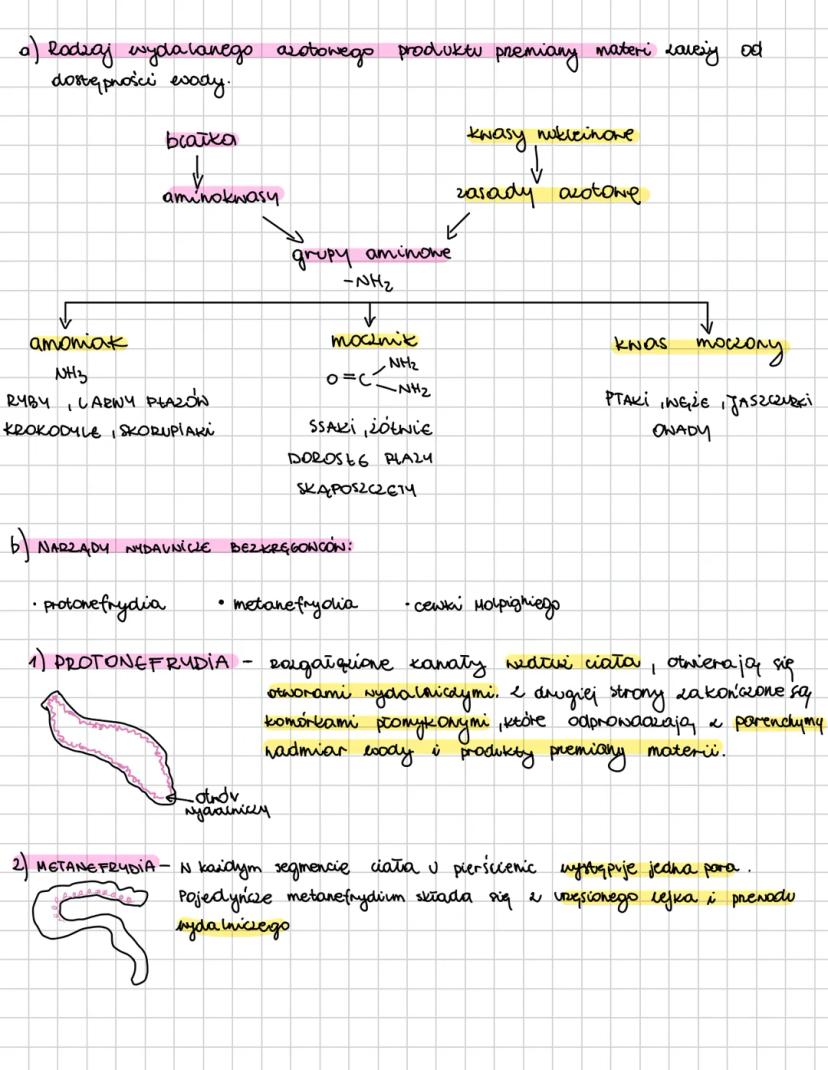 a) Rodzaj wydalanego azotowego produktu przemiany materi zależy od
dostępności wody.
białka
kwasy nukleinowe
aminokwasy
zasady azotowe
grupy aminowe
-NH₂
amoniak
mocznik
kwas moczowy
NH₃
O=C
NH₂
NH₂
RYBY, LARWY PŁAZÓW
KROKODYLE, SKORUPIAKI
SSAKI, ŻÓŁWIE
DOROSŁE PŁAZY
SKĄPOSZCZETY
PTAKI, WĘŻE, JASZCZURKI
OWADY
b) NARZĄDY WYDALNICZE BEZKRĘGOWCÓW:
· protonefrydia
• metanefrydia
· cewki Malpighiego
1) PROTONEFRYDIA - rozgałęzione kanały wzdłuż ciała, otwierają się
otworami wydalniczymi. z drugiej strony zakończone są
komórkami płomykowymi, które odprowadzają z parenchymy
nadmiar wody i produkty przemiany materii.
otwór
wydalniczy
2) METANEFRYDIA - W każdym segmencie ciała u pierścienic występuje jedna para.
Pojedyńcze metanefrydium składa się z urzęsionego lejka i przewodu
wydalniczego